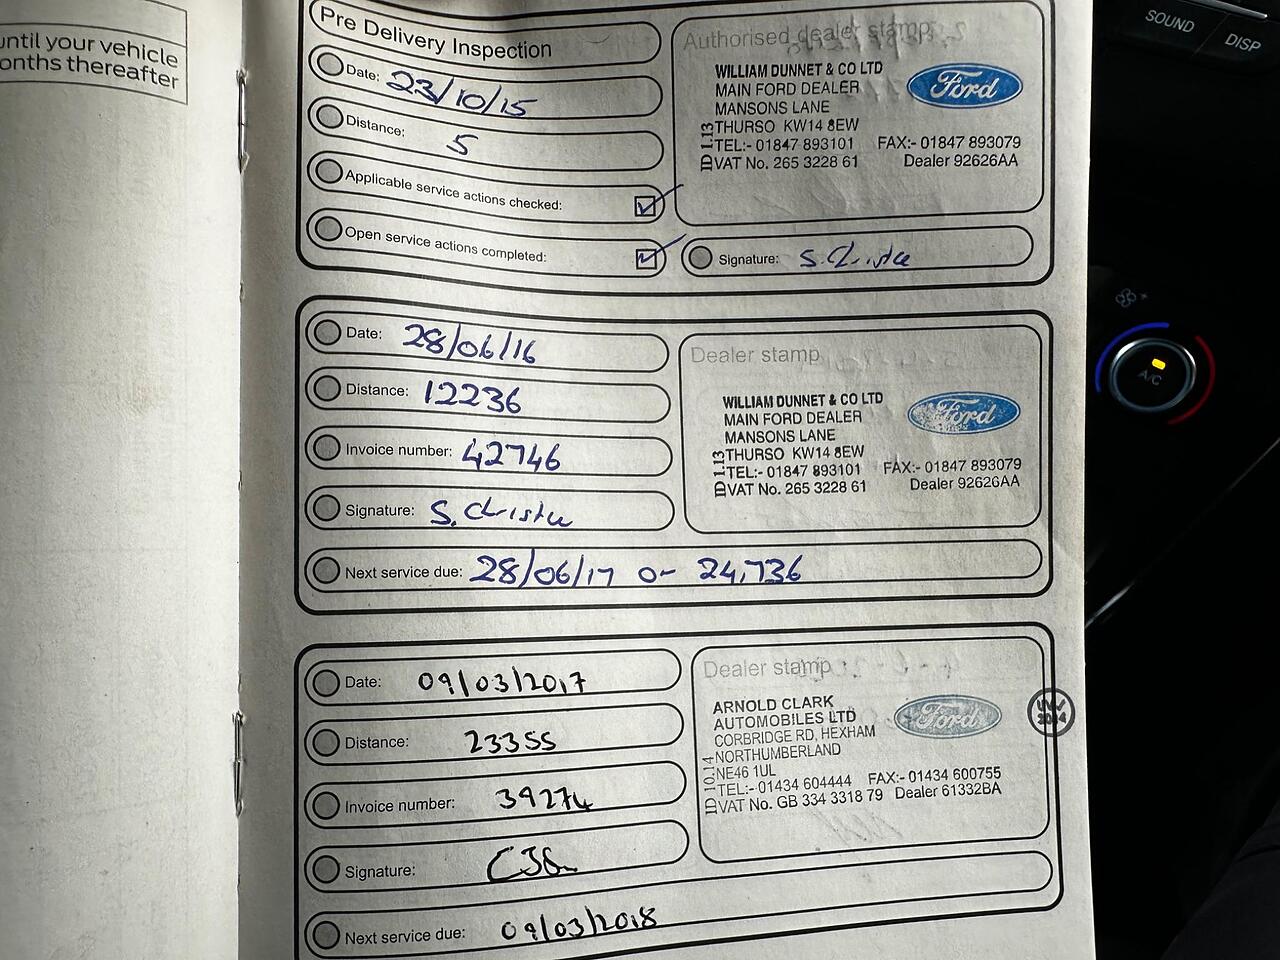 until your vehicle
onths thereafter
SOUND
DISP
A/C
Pre Delivery Inspection
Date: 23/10/15
Distance: 5
Applicable service actions checked:
Open service actions completed:
Authorised dealer stamp
WILLIAM DUNNET & CO LTD
MAIN FORD DEALER
MANSONS LANE
THURSO KW14 8EW
TEL:- 01847 893101 FAX:- 01847 893079
VAT No. 265 3228 61 Dealer 92626AA
ID 1.13
Ford
Signature: S. Christie
Date: 28/06/16
Distance: 12236
Invoice number: 42746
Signature: S. Christie
Next service due: 28/06/17 or 24,736
Dealer stamp
WILLIAM DUNNET & CO LTD
MAIN FORD DEALER
MANSONS LANE
THURSO KW14 8EW
TEL:- 01847 893101 FAX:- 01847 893079
VAT No. 265 3228 61 Dealer 92626AA
ID 1.13
Ford
Date: 09/03/2017
Distance: 23355
Invoice number: 39274
Signature:
Next service due: 09/03/2018
Dealer stamp
ARNOLD CLARK
AUTOMOBILES LTD
CORBRIDGE RD, HEXHAM
NORTHUMBERLAND
NE46 1UL
TEL:- 01434 604444 FAX:- 01434 600755
VAT No. GB 334 3318 79 Dealer 61332BA
ID 10.14
Ford